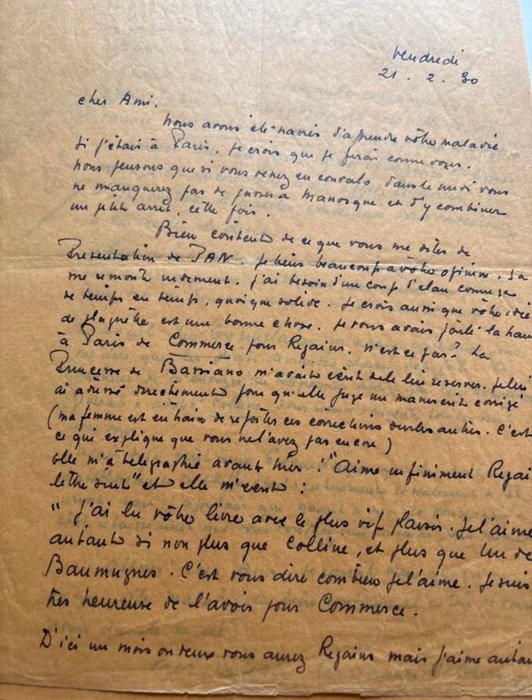 Vendredi
21. 2. 30
cher Ami.
Nous avons été navrés d'apprendre vôtre maladie
Si j'étais à Paris, je crois que je ferais comme vous.
Nous pensons que si vous venez en convalo, dans le midi vous
ne manquerez pas de passer à Manosque et d'y combiner
un petit arrêt, cette fois.
Bien content de ce que vous me dites de
Présentation de PAN. Je tiens beaucoup à vôtre opinion. Ça
me remonte rudement. j'ai besoin d'un coup d'élan comme ça
de temps en temps, quoique solide. Je crois aussi que vôtre idée
de plaquette est une bonne chose. Je vous avais parlé là-haut
à Paris de Commerce pour Regain, n'est ce pas? La
Princesse de Bassiano m'avait écrit de le lui réserver. Je lui
ai adressé directement pour qu'elle juge un manuscrit corrigé
(ma femme est en train de reporter ces corrections sur les autres. C'est
ce qui explique que vous ne l'avez pas encore)
elle m'a télégraphié avant hier: "Aime infiniment Regain
lettre suit" et elle m'écrit:
"J'ai lu vôtre livre avec le plus vif plaisir. Je l'aime
autant si non plus que Colline, et plus que Un de
Baumugnes. C'est vous dire combien je l'aime. Je suis
très heureuse de l'avoir pour Commerce.
D'ici un mois ou deux vous aurez Regain mais j'aime autan